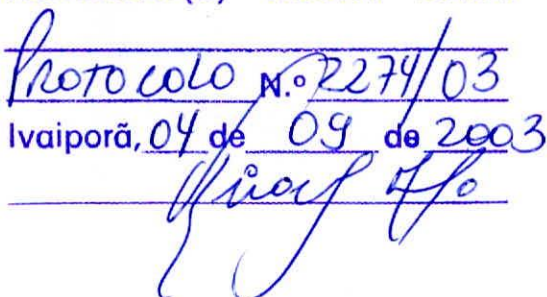 Protocolo N.º 2274/03
Ivaiporã, 04 de 09 de 2003